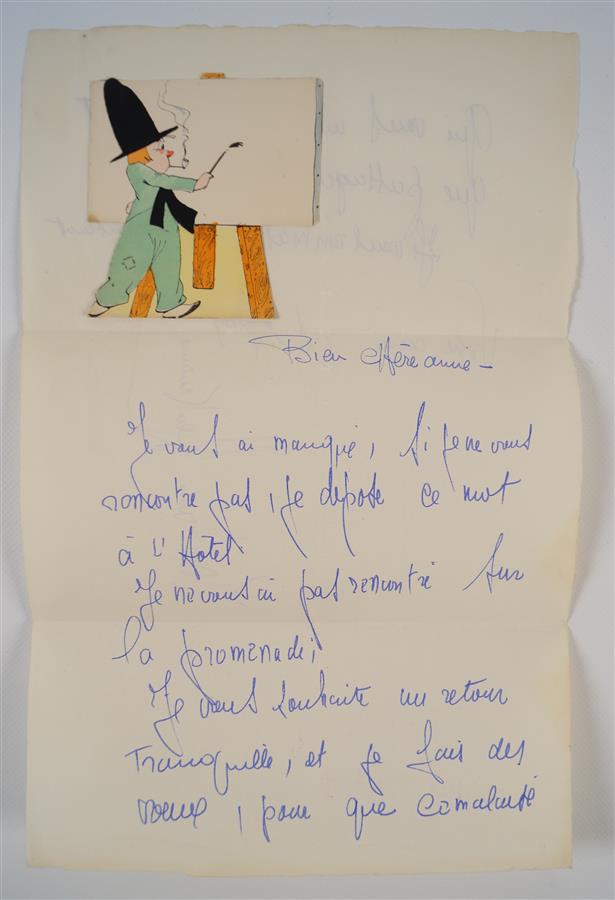 Bien chère amie -
Je vous ai manqué, si je ne vous
rencontre pas, je dépose ce mot
à l'Hotel
Je ne vous ai pas rencontré sur
la promenade;
Je vous souhaite un retour
tranquille, et je fais des
voeux, pour que